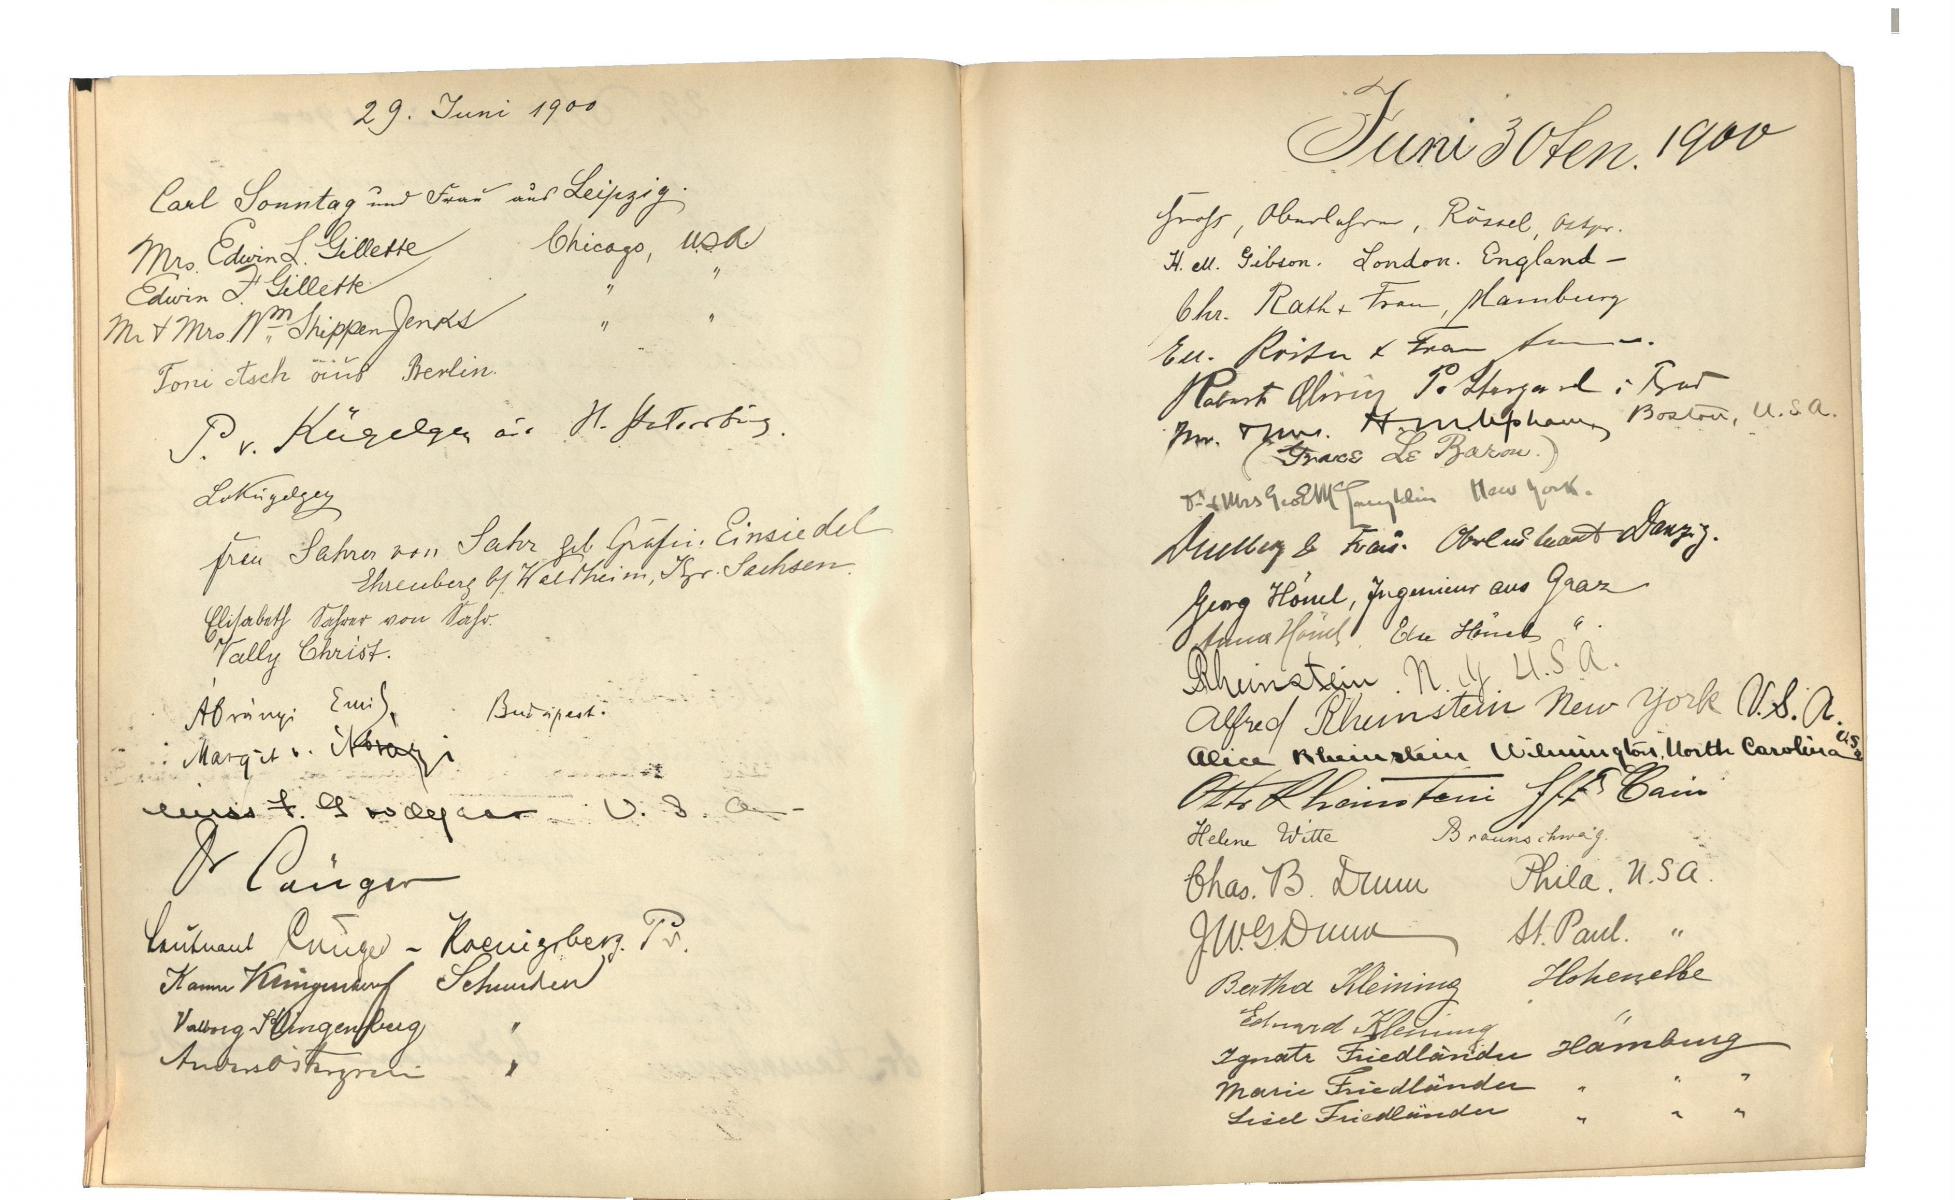 29. Juni 1900
Carl Sonntag und Frau aus Leipzig.
Mrs. Edwin L. Gillette Chicago, U.S.A
Edwin F. Gillette " "
Mr & Mrs. Wm Shippen Jenks " "
Toni aus Berlin.
P. v. Kügelgen aus St. Petersburg.
Frau Sahrer von Sahr geb. Gräfin Einsiedel
Ehrenberg b/ Waldheim, Kgr. Sachsen.
Elisabeth Sahrer von Sahr.
Vally Christ.
Ábrányi Emil, Budapest.
Margit v. Ábrányi
Miss F. U. S. A
Dr
Leutnant Koenigsberg. Pr.
Schweden
Valborg Klingenberg "
Anders Östergren "
Juni 30ten. 1900
Oberlehrer, Rössel, Ostpr.
H. M. Gibson. London. England –
Chr. Rath & Frau, Hamburg
& Frau
Robert Pr. Stargard
Mr. & Mrs. H. M. Upham, Boston, U.S.A.
(Grace Le Baron.)
Dr & Mrs Geo E Mc Laughlin New York.
& Frau. Danzig.
Georg Hönel, Ingenieur aus Graz
Anna Hönel, Hönel ".
Rheinstein N. Y. U.S.A.
Alfred Rheinstein New York U.S.A.
Alice Rheinstein Wilmington, North Carolina U.S.A
Otto Rheinstein
Helene Witte Braunschweig.
Chas. B. Dunn Phila. U.S.A.
J.W.G. Dunn St. Paul. "
Bertha Kleining Hohenelbe
Eduard Kleining
Ignatz Friedländer Hamburg
Marie Friedländer " " "
Lisel Friedländer " " "